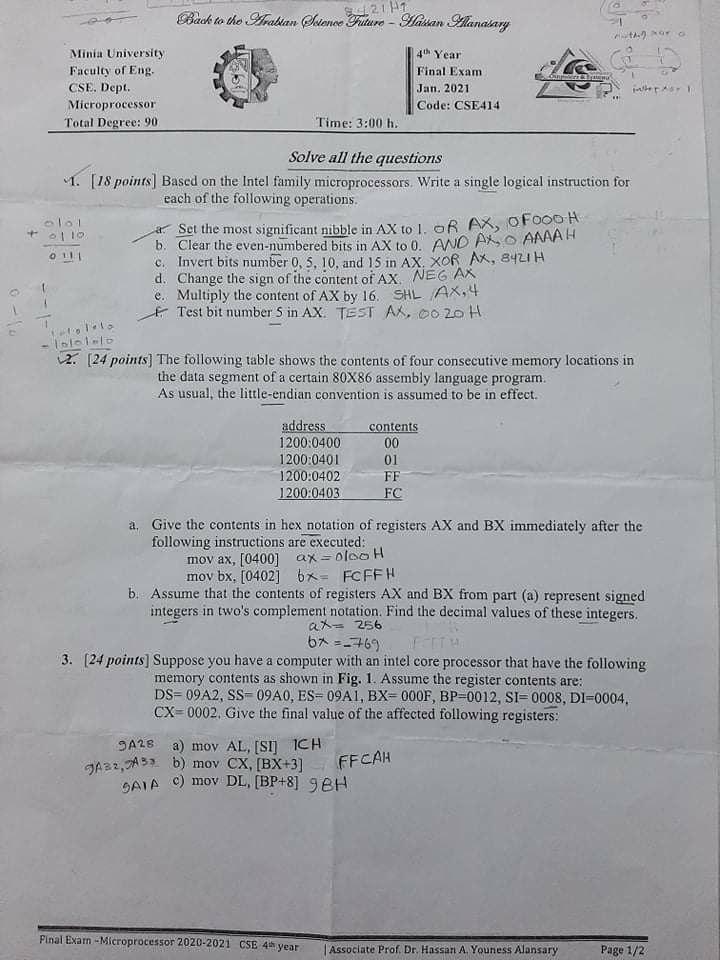 8421H
Back to the Arabian Science Future – Hassan Alanasary
Minia University
Faculty of Eng.
CSE. Dept.
Microprocessor
Total Degree: 90
Time: 3:00 h.
4th Year
Final Exam
Jan. 2021
Code: CSE414
Computers & Systems
Solve all the questions
1. [18 points] Based on the Intel family microprocessors. Write a single logical instruction for
each of the following operations.
a. Set the most significant nibble in AX to 1. OR AX, 0F000H
b. Clear the even-numbered bits in AX to 0. AND AX, 0AAAAH
c. Invert bits number 0, 5, 10, and 15 in AX. XOR AX, 8421H
d. Change the sign of the content of AX. NEG AX
e. Multiply the content of AX by 16. SHL AX,4
f. Test bit number 5 in AX. TEST AX, 0020H
0101
+ 0110
0111
2. [24 points] The following table shows the contents of four consecutive memory locations in
the data segment of a certain 80X86 assembly language program.
As usual, the little-endian convention is assumed to be in effect.
address contents
1200:0400 00
1200:0401 01
1200:0402 FF
1200:0403 FC
a. Give the contents in hex notation of registers AX and BX immediately after the
following instructions are executed:
mov ax, [0400] ax = 0100H
mov bx, [0402] bx = FCFFH
b. Assume that the contents of registers AX and BX from part (a) represent signed
integers in two's complement notation. Find the decimal values of these integers.
ax= 256
bx =-769
3. [24 points] Suppose you have a computer with an intel core processor that have the following
memory contents as shown in Fig. 1. Assume the register contents are:
DS= 09A2, SS= 09A0, ES= 09A1, BX= 000F, BP=0012, SI= 0008, DI=0004,
CX= 0002. Give the final value of the affected following registers:
9A28 a) mov AL, [SI] 1CH
9A32, 9A33 b) mov CX, [BX+3] FFCAH
9A1A c) mov DL, [BP+8] 9BH
Final Exam –Microprocessor 2020-2021 CSE 4th year
| Associate Prof. Dr. Hassan A. Youness Alansary
Page 1/2